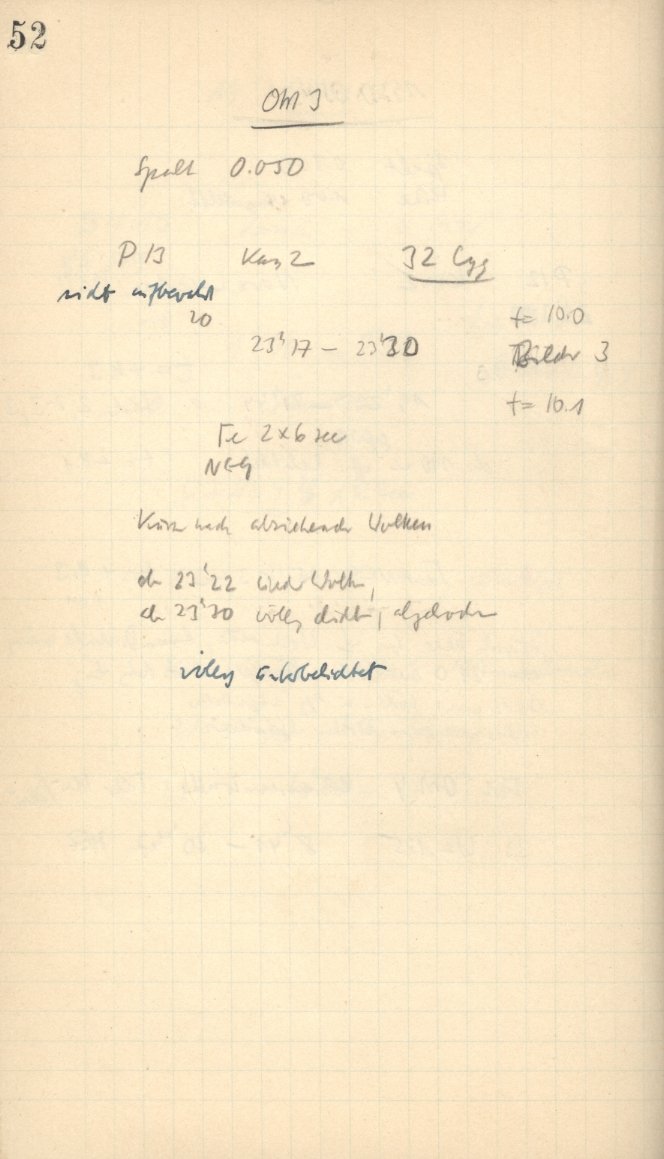 52
Okt 3
Spalt 0.050
P 13 Kas 2 32 Cyg
nicht aufbewahrt
20 t = 10.0
23h 17 – 23h 30 Bilder 3
t = 10.1
Fe 2 x 6 sec
NEG
Kurz nach abziehender Wolken
ab 23h 22 wieder Wolken,
ab 23h 30 völlig dicht, abgebrochen
völlig unterbelichtet